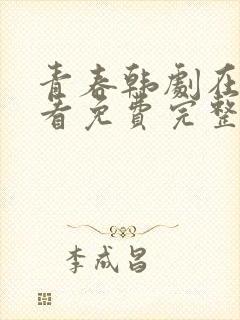 青春韩劇在
看免费完整
李成昌